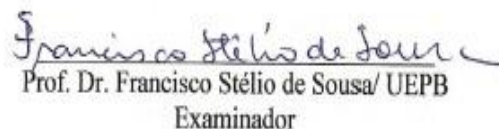 Francisco Stélio de Sousa
Prof. Dr. Francisco Stélio de Sousa/ UEPB
Examinador